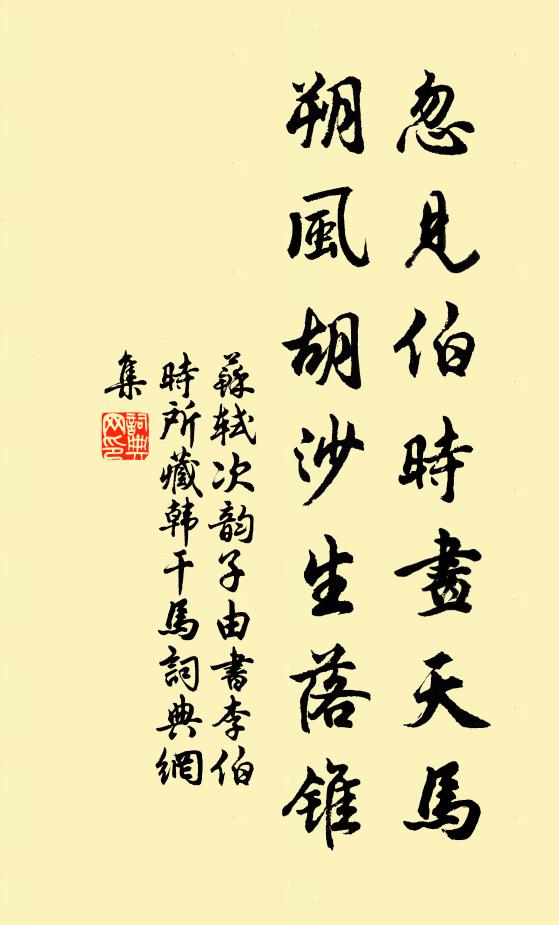 忽見伯時畫天馬
朔風胡沙生落錐
蘇軾次韵子由書李伯
時所藏韩干馬詞典網
集
詞典
网印